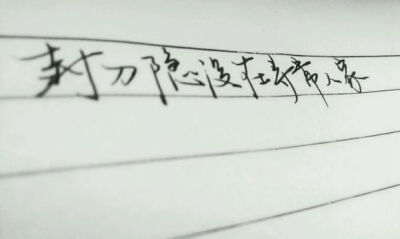 封刀隐没在寻常人家